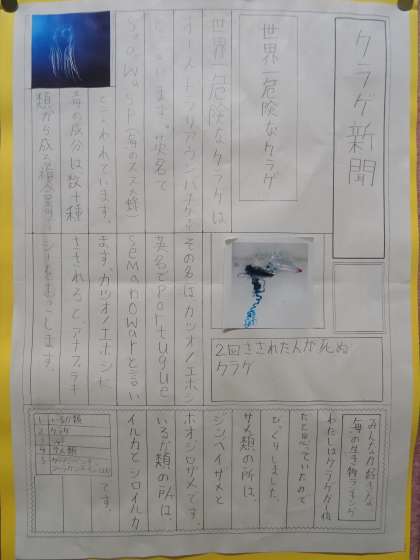 クラゲ新聞
世界一危険なクラゲ
世界一危険なクラゲは、
オーストラリアウンバチクラゲ
といいます。英名で
SeaWasp(海のスズメ蜂)
といわれています。
毒の成分は数十種
類から成る
2回さされた人が死ぬ
クラゲ
その名はカツオノエボシ
英名でportugue
semanowarと言い
ます。カツオノエボシに
さされると、アナフィラキ
シーをおこします。
みんなが好きな
海の生き物ランキング
わたしはクラゲが1位
だと思っていたので
びっくりしました。
サメ類の所は、
ジンベイザメと
ホオジロザメです。
いるか類の所は、
イルカとシロイルカ
です。
1 いるか類
2 クラゲ
3
4 サメ類
5